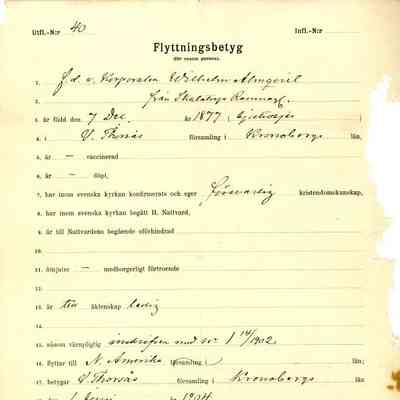 Utfl.-N:r 40 Infl.-N:r
Flyttningsbetyg
(för vuxen person).
1. f. d. v. Korpralen Wilhelm Almqvist
2. från
3. är född den 7 Dec. år 1877 (
4. i V. Thorsås församling i Kronobergs län,
5. är — vaccinerad
6. är — döpt,
7. har inom svenska kyrkan konfirmerats och eger försvarlig kristendomskunskap,
8. har inom svenska kyrkan begått H. Nattvard,
9. är till Nattvardens begående oförhindrad
10.
11. åtnjuter — medborgerligt förtroende
12.
13. är till äktenskap ledig
14.
15. såsom värnpligtig inskrifven med nr 1 14/1902.
16. flyttar till N. Amerika församling i län;
17. betygar V. Thorsås församling i Kronobergs län
den 1 1904